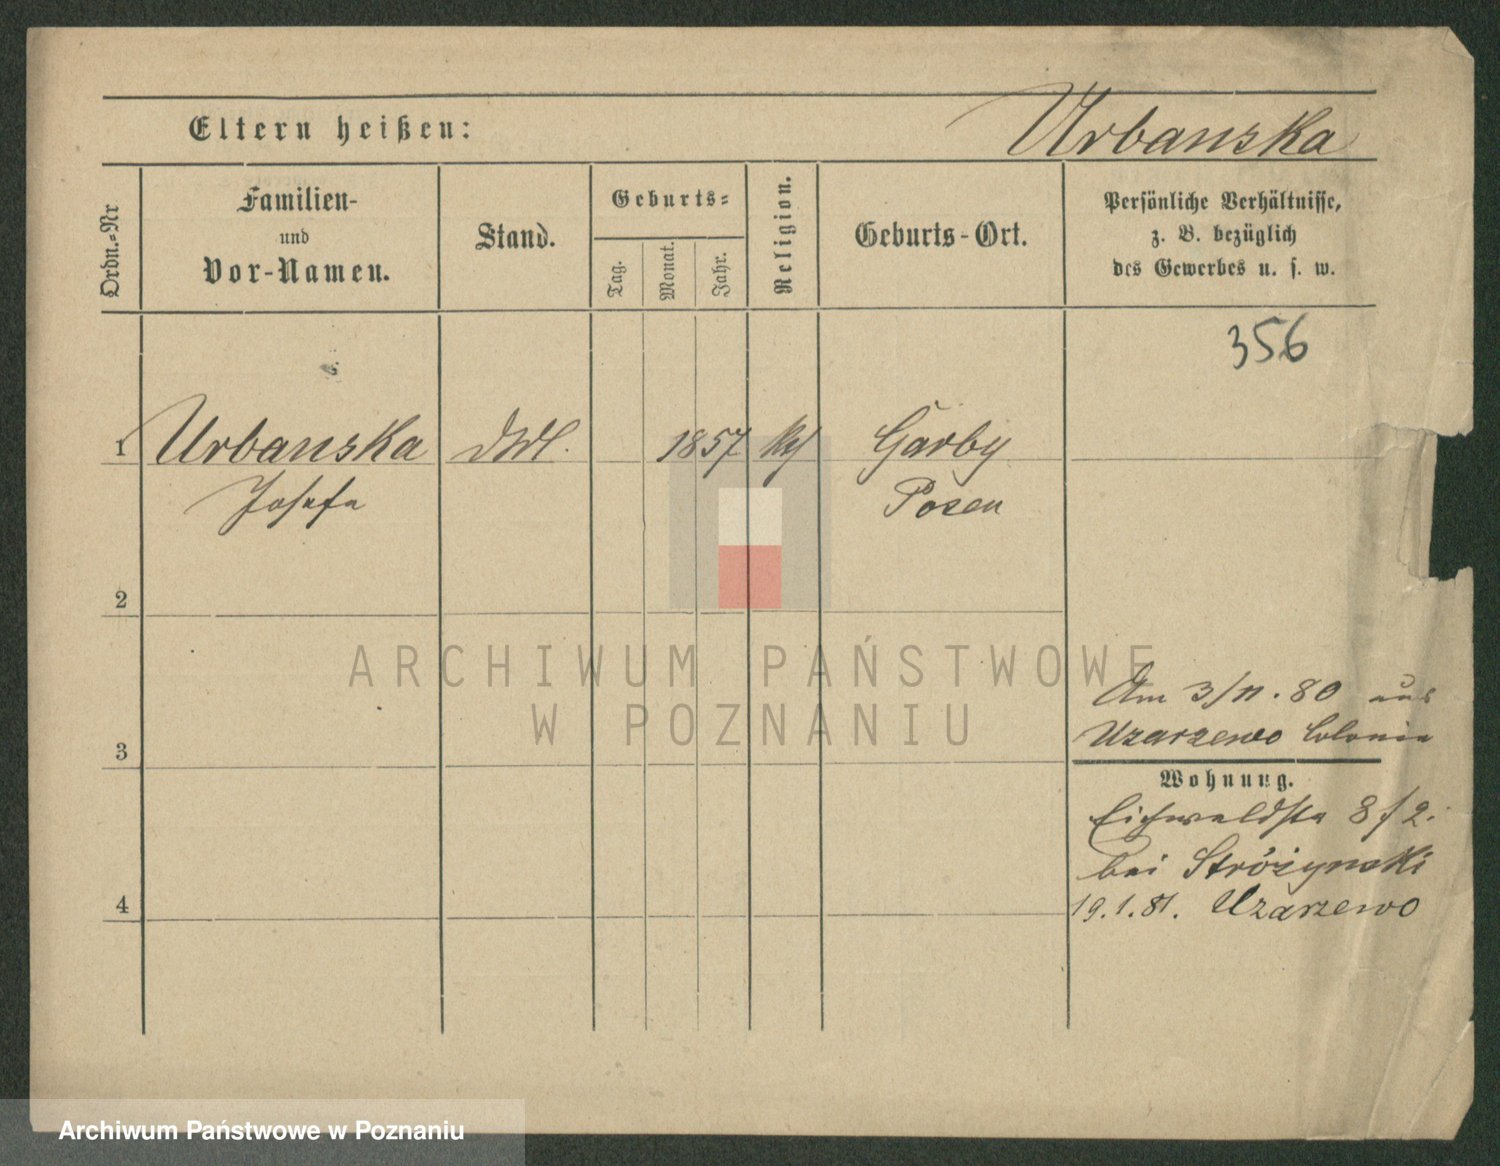 Eltern heißen:
Urbanska
Ordn.-Nr
Familien-
und
Vor-Namen.
Stand.
Geburts-
Tag.
Monat.
Jahr.
Religion.
Geburts-Ort.
Persönliche Verhältnisse,
z. B. bezüglich
des Gewerbes u. s. w.
356
1
Urbanska
Josefa
1857
Garby
Posen
2
3
4
Am 3/11. 80 aus
Uzarzewo Colonie
Wohnung.
Eichwaldstr 8/2.
bei Stróżynski
19.1.81. Uzarzewo
ARCHIWUM PAŃSTWOWE
W POZNANIU
Archiwum Państwowe w Poznaniu